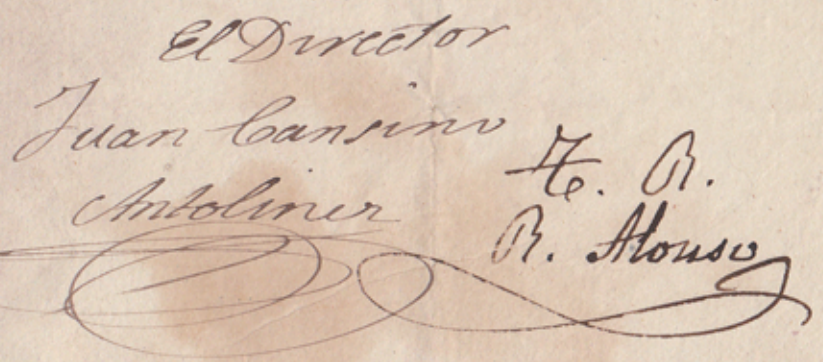 El Director
Juan Cansino
Antolinez
R.
R. Alonso